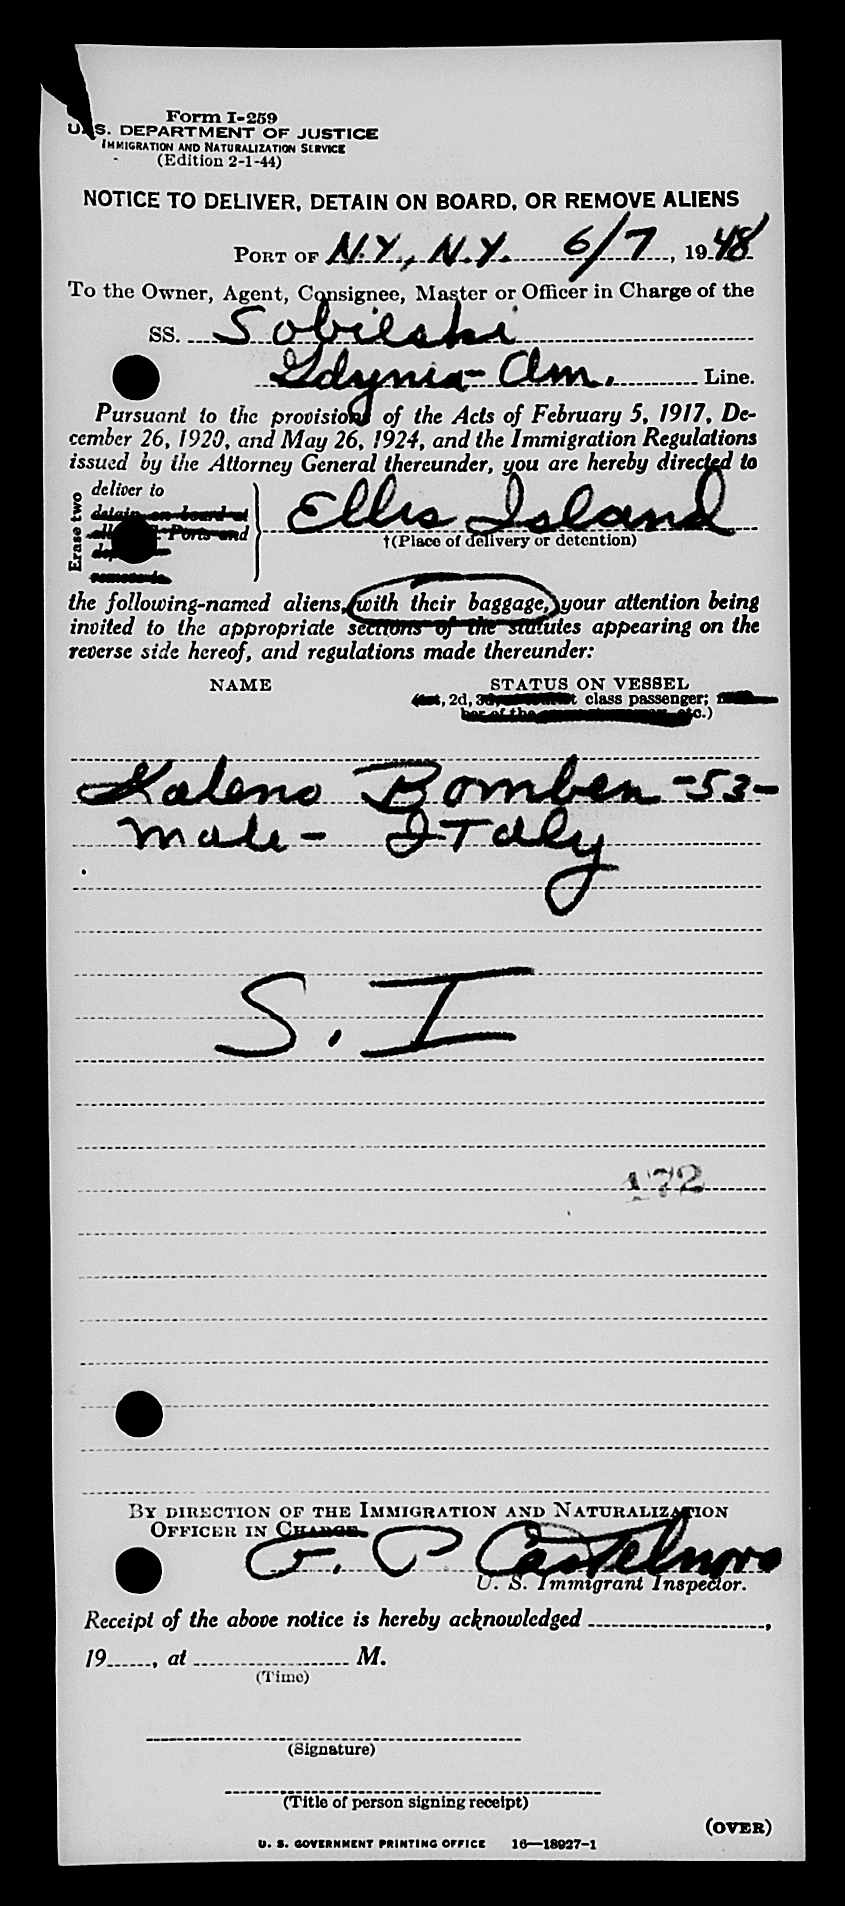 Form I-259
U.S. DEPARTMENT OF JUSTICE
IMMIGRATION AND NATURALIZATION SERVICE
(Edition 2-1-44)
NOTICE TO DELIVER, DETAIN ON BOARD, OR REMOVE ALIENS
PORT OF N.Y., N.Y. 6/7, 1948
To the Owner, Agent, Consignee, Master or Officer in Charge of the
SS. Sobieski
Gdynia-Am. Line.
Pursuant to the provisions of the Acts of February 5, 1917, De-
cember 26, 1920, and May 26, 1924, and the Immigration Regulations
issued by the Attorney General thereunder, you are hereby directed to
Erase two
deliver to
detain on board at
Ports and
remove to
Ellis Island
†(Place of delivery or detention)
the following-named aliens, with their baggage, your attention being
invited to the appropriate sections of the statutes appearing on the
reverse side hereof, and regulations made thereunder:
NAME STATUS ON VESSEL
2d, class passenger;
ber of the etc.)
Bomben -53-
Male - Italy
S. I
172
BY DIRECTION OF THE IMMIGRATION AND NATURALIZATION
OFFICER IN CHARGE
F. P. Castelnovo
U. S. Immigrant Inspector.
Receipt of the above notice is hereby acknowledged ,
19 , at M.
(Time)
(Signature)
(Title of person signing receipt)
(OVER)
U. S. GOVERNMENT PRINTING OFFICE 16—18927-1